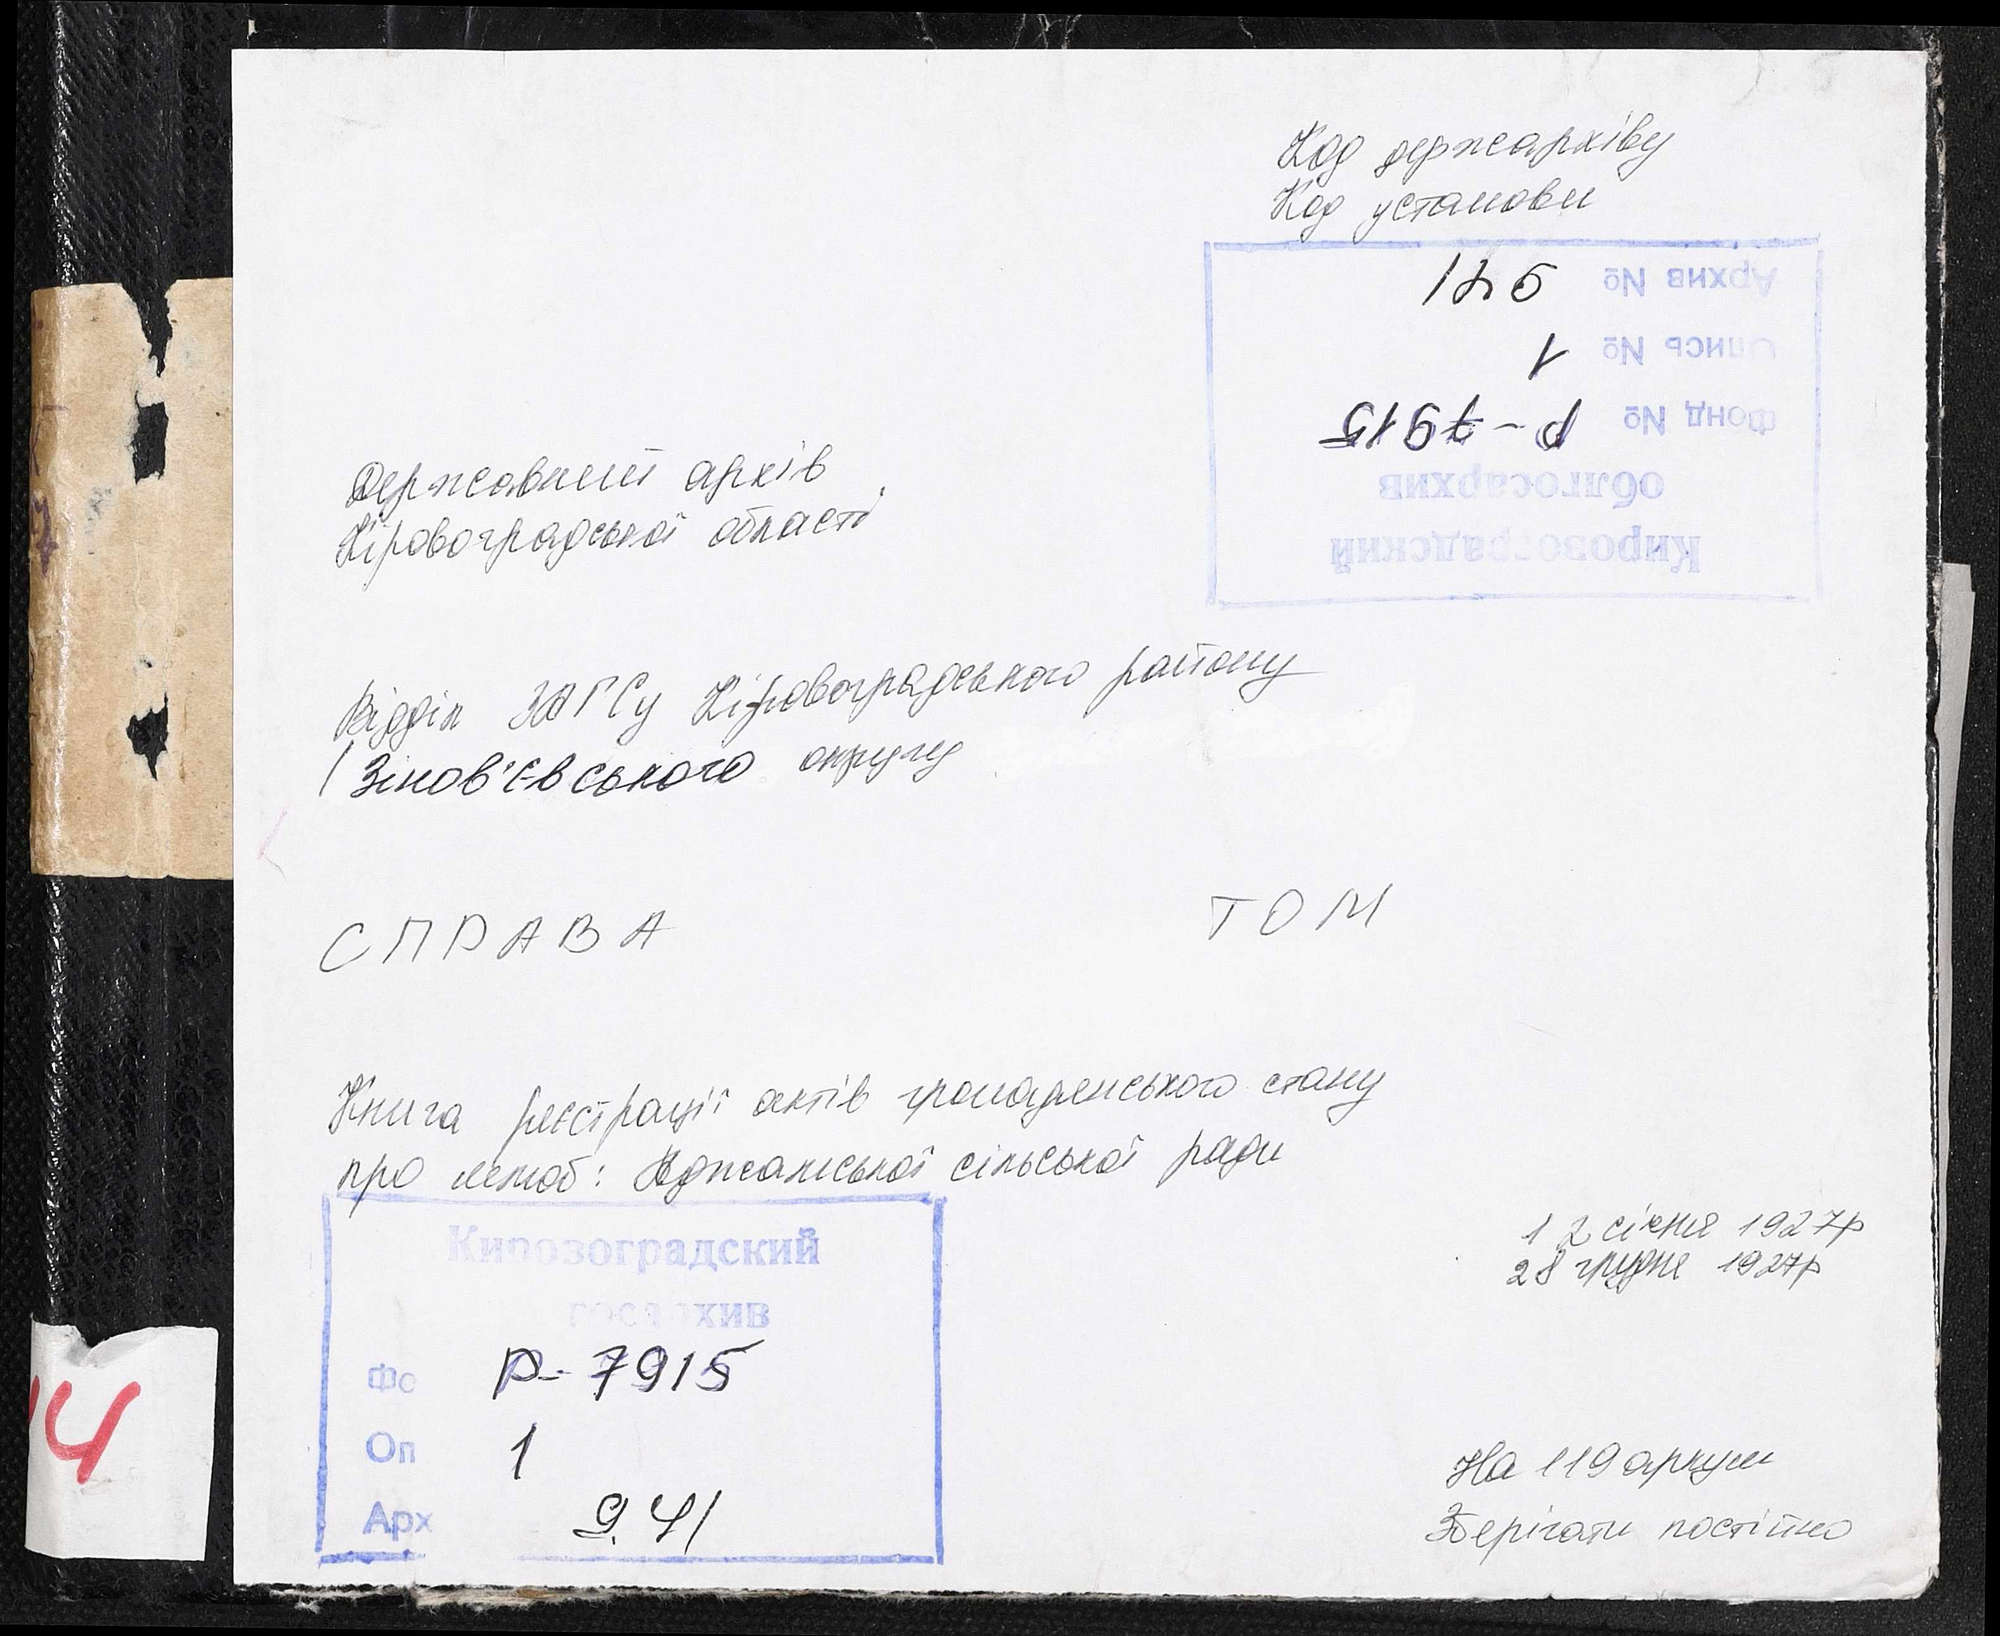 Код держархіву
Код установи
Архив № 941
Опись № 1
Фонд № Р-7915
облгосархив
Кировоградский
Державний архів
Кіровоградської області
Відділ ЗАГСу Кіровоградського району
Зінов'євського округу
СПРАВА ТОМ
Книга реєстрації актів громадянського стану
про шлюб: Аджамської сільської ради
12 січня 1927р
28 грудня 1927р
Кировоградский
госархив
Фо Р-7915
Оп 1
Арх 941
На 119 аркуш
Зберігати постійно
4